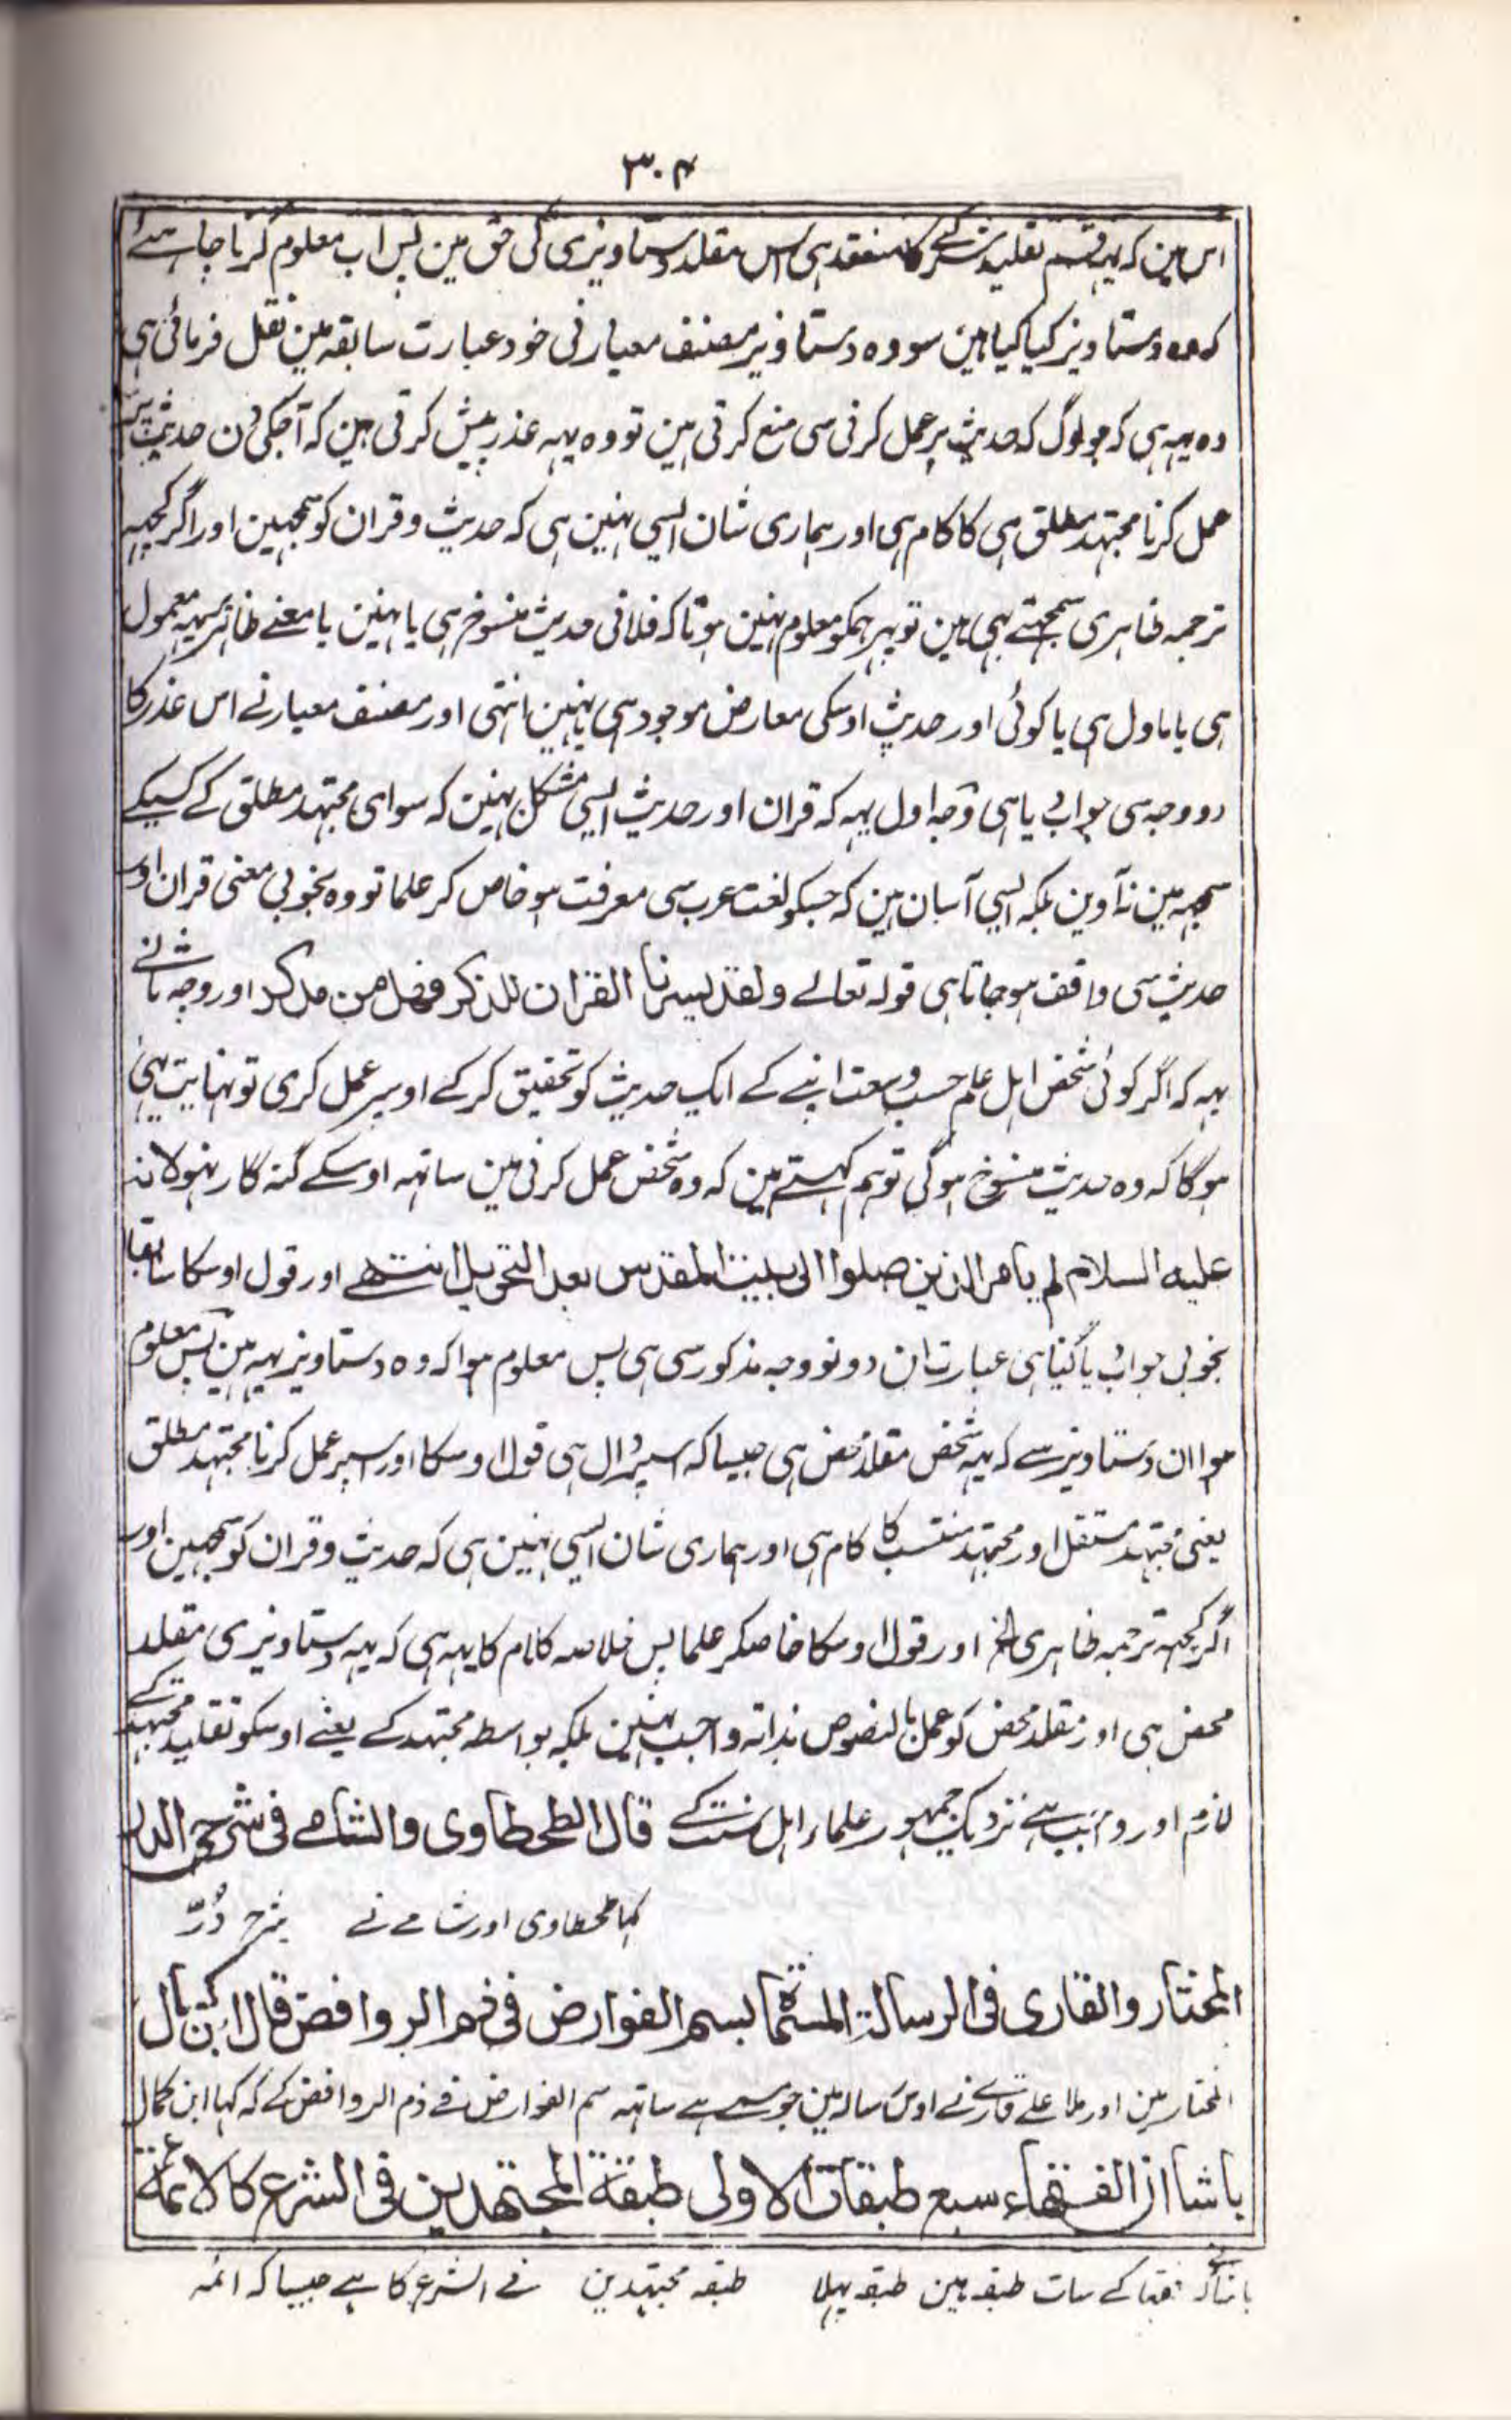 ۳۰۴
اس مین کہ یہ قسم تقلید شرک کا منعقد ہی اس مقلد دستاویزی کی حق مین پس اب معلوم کرنا چاہئے
کہ وہ دستاویز کیا کیا ہین سو وہ دستاویز مصنف معیار نی خود عبارت سابقہ مین نقل فرمائی ہی
وہ یہہ ہی کہ جو لوگ کہ حدیث پر عمل کرنی سی منع کرتی ہین تو وہ یہہ عذر پیش کرتی ہین کہ آجکی دن حدیث پر
عمل کرنا مجتہد مطلق ہی کا کام ہی اور ہماری شان ایسی نہین ہی کہ حدیث و قران کو سمجہین اور اگر کچہہ
ترجمہ ظاہری سمجہتے بہی ہین تو پہر ہمکو معلوم نہین ہوتا کہ فلانی حدیث منسوخ ہی یا نہین یا معنے ظاہر پر یہہ معمول
ہی یا ماول ہی یا کوئی اور حدیث اوسکی معارض موجود ہی یا نہین انتہی اور مصنف معیار نے اس عذر کا
دو وجہ سی جواب دیا ہی وجہ اول یہہ کہ قران اور حدیث ایسی مشکل نہین کہ سوای مجتہد مطلق کے کسیکے
سمجہہ مین نہ آوین بلکہ ایسی آسان ہین کہ جسکو لغت عرب سی معرفت ہو خاص کر علما تو وہ بخوبی معنی قران اور
حدیث سی واقف ہو جاتا ہی قولہ تعالے ولقد یسرنا القران للذکر فهل من مدکر اور وجہ ثانے
یہہ کہ اگر کوئی شخص اہل علم حسب وسعت اپنے کے ایک حدیث کو تحقیق کر کے اوسپر عمل کری تو نہایت یہی
ہوگا کہ وہ حدیث منسوخ ہوگی تو ہم کہتے ہین کہ وہ شخص عمل کرنی مین ساتہہ اوسکے گنہ گار نہو لانہ
علیه السلام لم یامر الذین صلوا الی بیت المقدس بعد التحویل انتہے اور قول اوسکا سابقا
بخوبی جواب دیا گیا ہی عبارت ان دونو وجہ مذکور سی ہی پس معلوم ہوا کہ وہ دستاویز یہہ ہین پس معلوم
ہوا ان دستاویز سے کہ یہہ شخص مقلد محض ہی جیسا کہ اسپر دال ہی قول اوسکا اور اسپر عمل کرنا مجتہد مطلق
یعنی مجتہد مستقل اور مجتہد منتسب کا کام ہی اور ہماری شان ایسی نہین ہی کہ حدیث و قران کو سمجہین اور
اگر کچہہ ترجمہ ظاہری الخ اور قول اوسکا خاصکر علما پس خلاصہ کلام کا یہہ ہی کہ یہہ دستاویزی مقلد
محض ہی اور مقلد محض کو عمل بالنصوص بذاتہ واجب نہین بلکہ بواسطہ مجتہد کے یعنے اوسکو تقلید مجتہد کے
لازم اور واجب ہے نزدیک جمہور علماء اہل سنت کے قال الطحطاوی والشامے فی شرح الدر
کہا طحطاوی اور شامے نے شرح دُرّ
المختار والقاری فی الرسالة المسماة بسم الفوارض فی ذم الروافض قال ابن کمال
المختار مین اور ملا علے قارے نے اوس رسالہ مین جو مسمے ہے ساتہہ سم الفوارض فے ذم الروافض کے کہ کہا ابن کمال
باشا ان الفقهاء سبع طبقات الاولی طبقة المجتهدین فی الشرع کالائمة
باشا نے کہ فقہا کے سات طبقہ ہین طبقہ پہلا طبقہ مجتہدین فے الشرع کا ہے جیسا کہ ائمہ